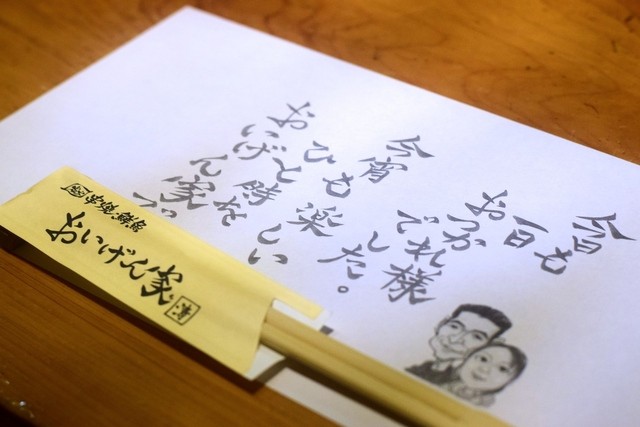 今日も
一日
おつかれ様
でした。
今宵も楽しい
ひと時を
おいげん家で
串焼・鮮魚
おいげん家